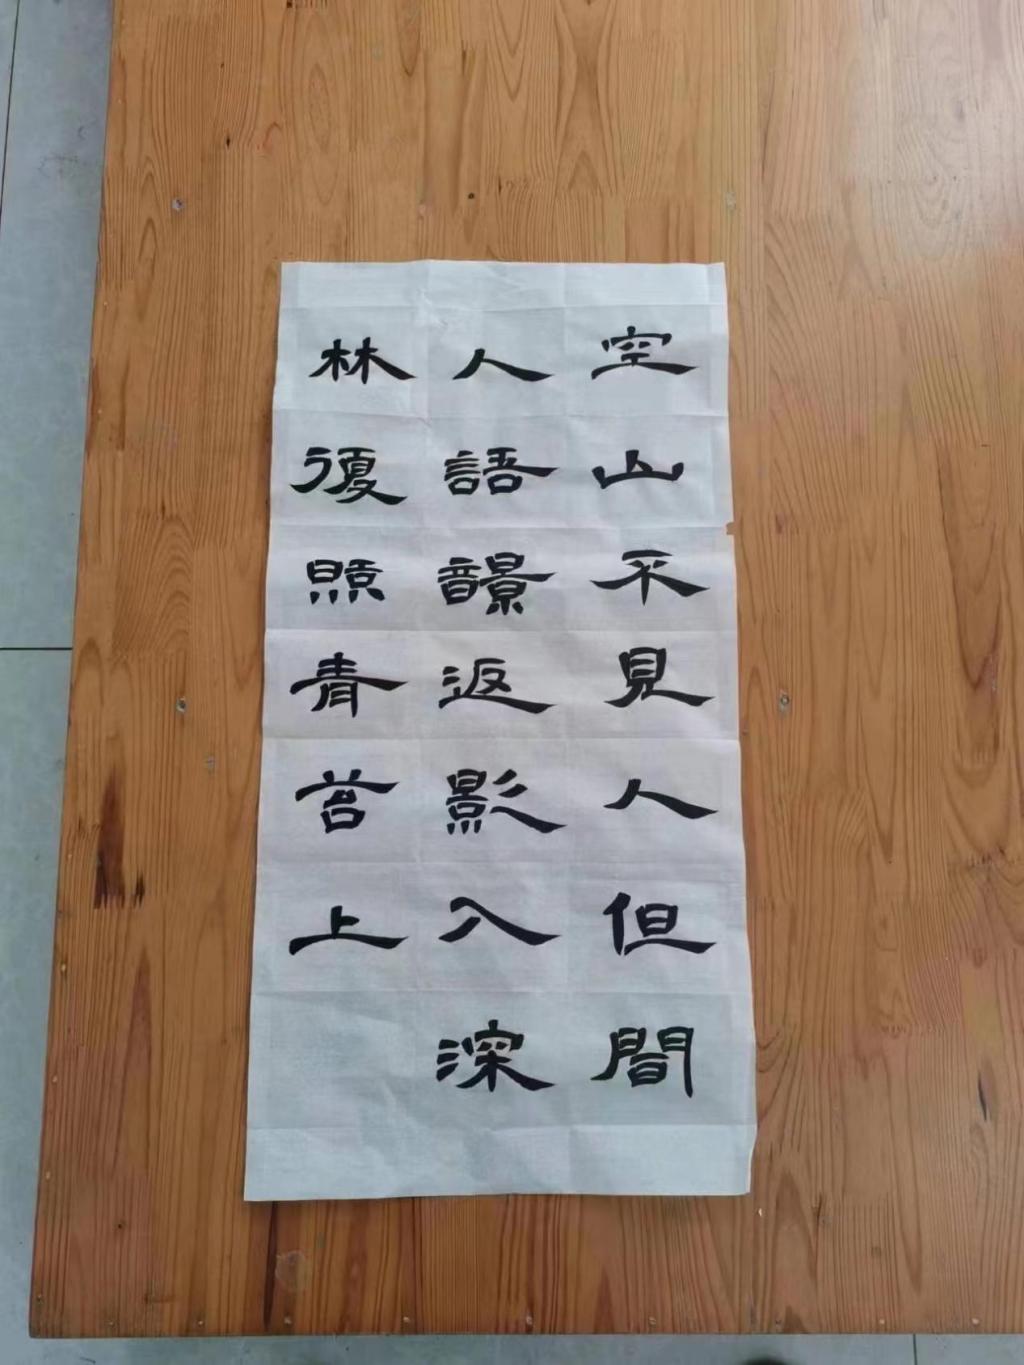 空山不見人但間
人語響返影入深
林復照青苔上